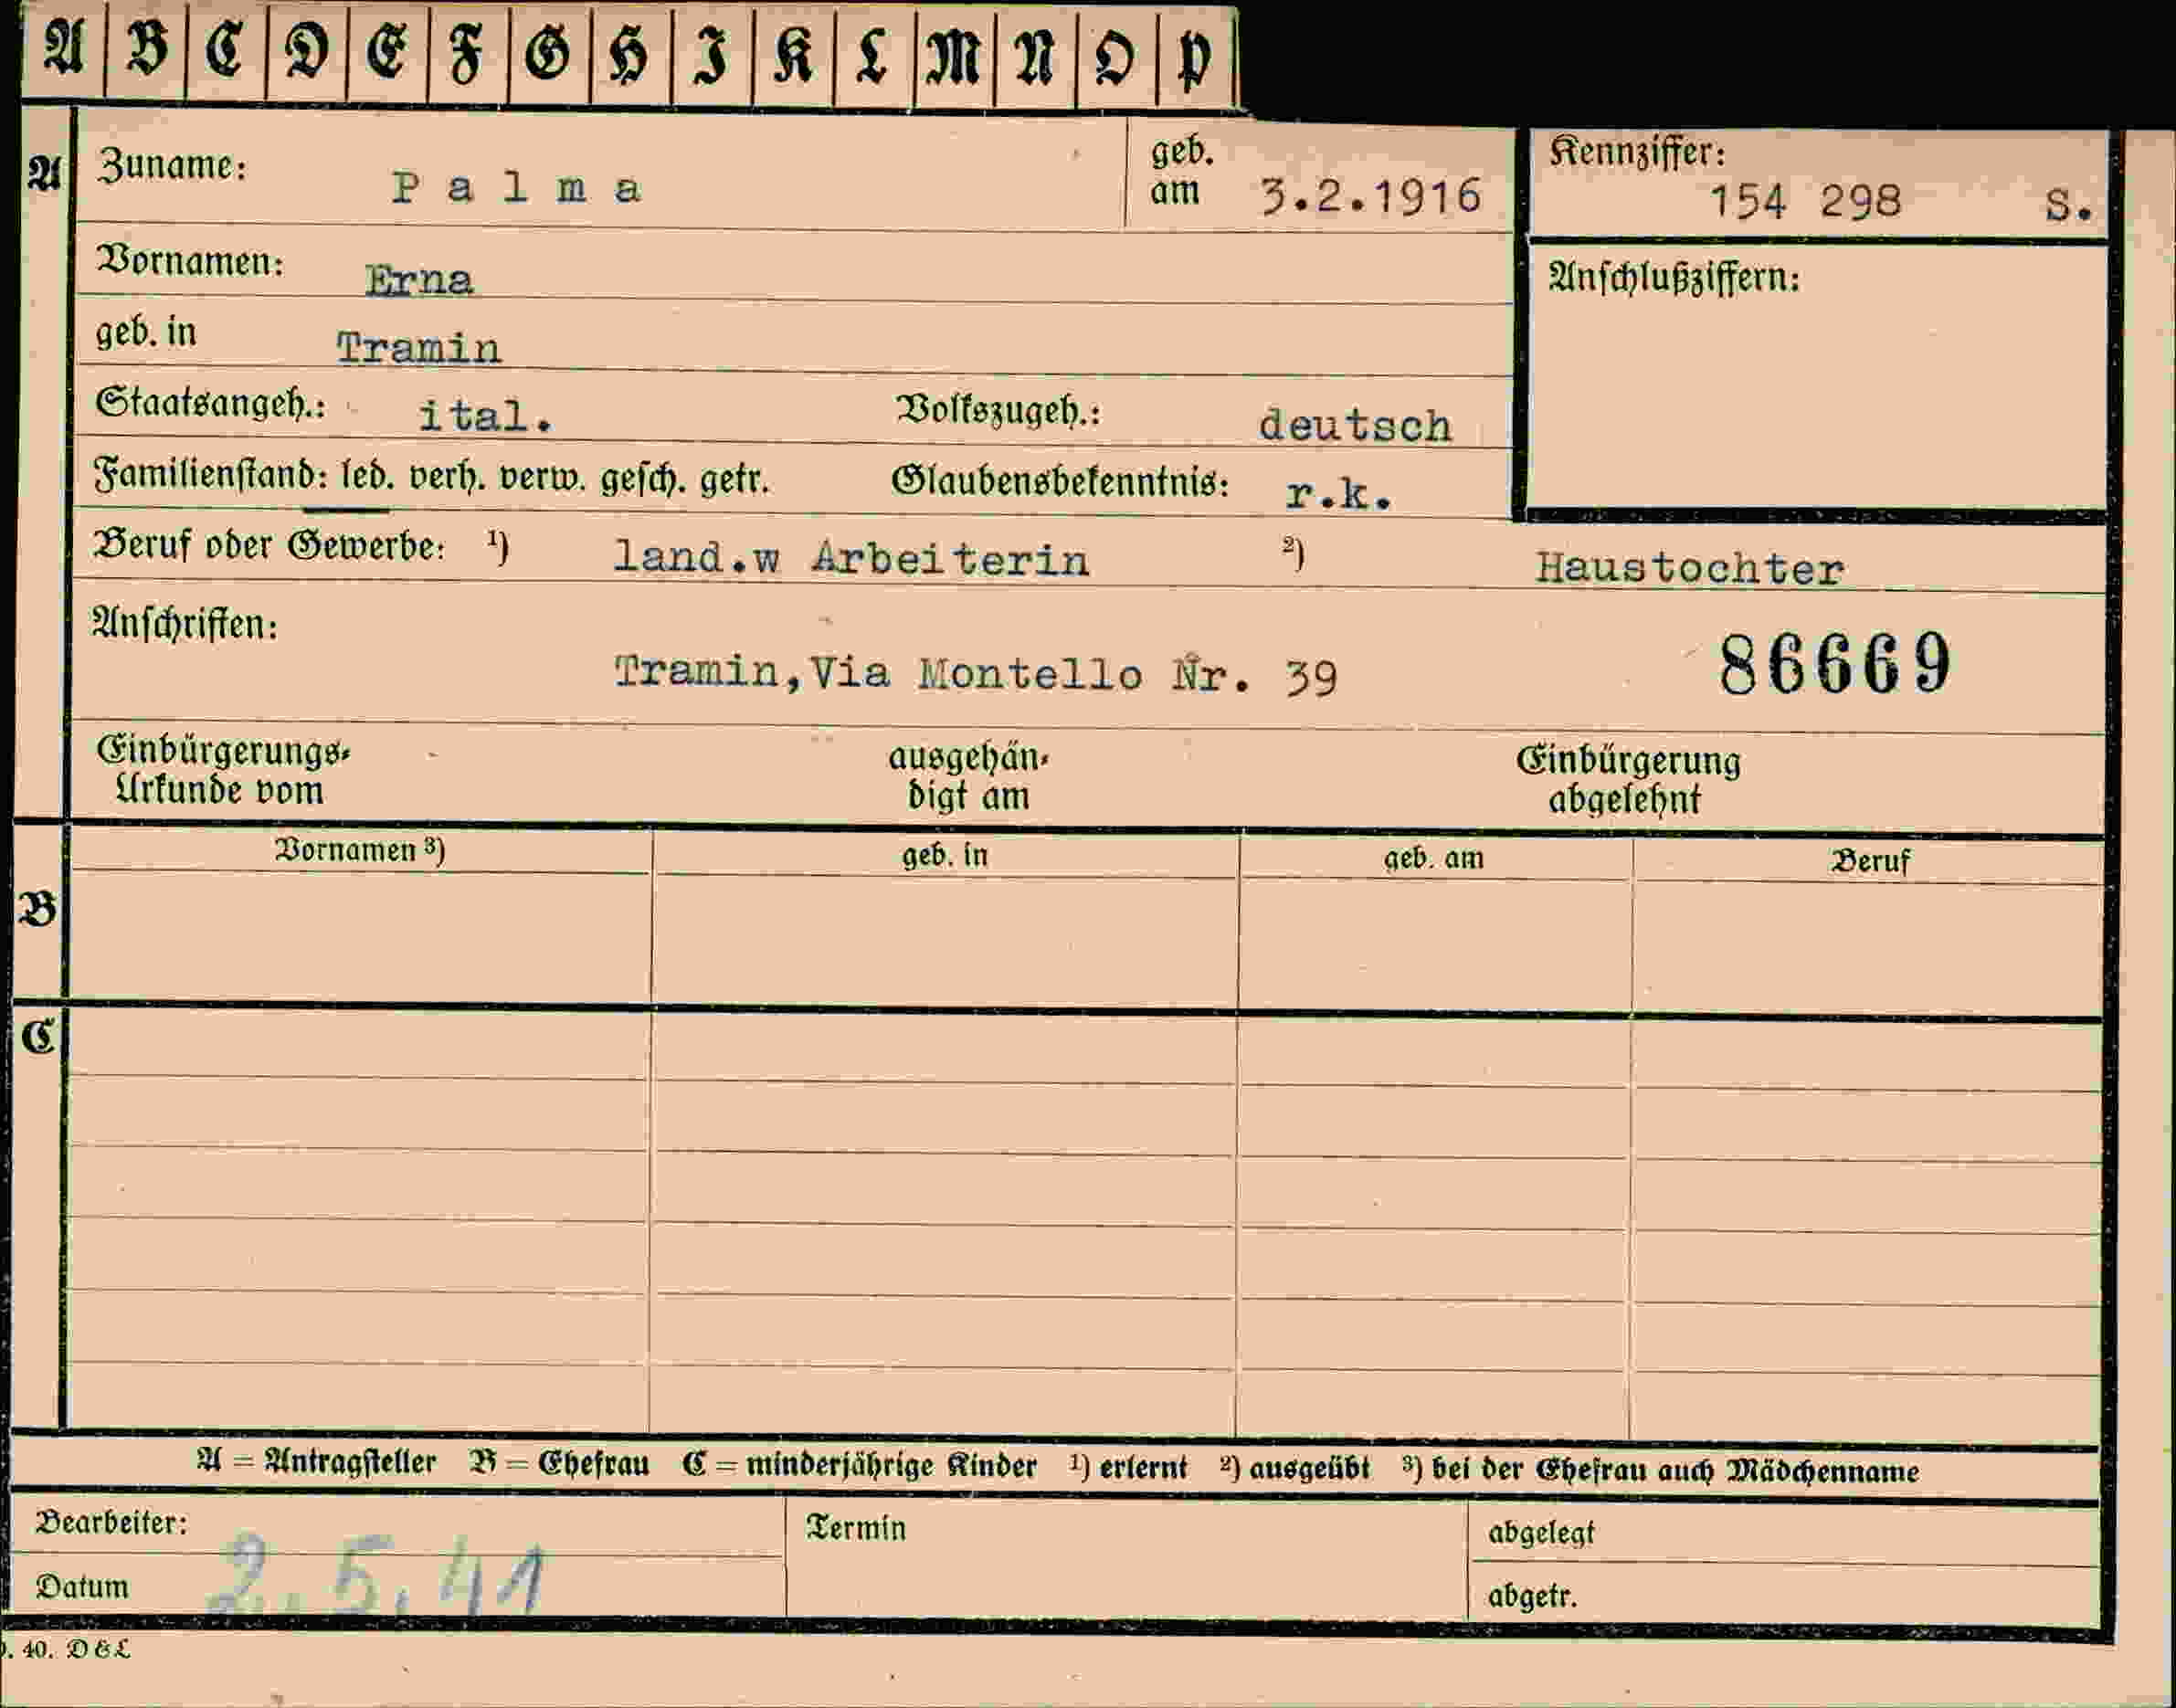 A B C D E F G H I K L M N O P
A Zuname: Palma geb. am 3.2.1916 Kennziffer: 154 298 S.
Vornamen: Erna Anschlußziffern:
geb. in Tramin
Staatsangeh.: ital. Volkszugeh.: deutsch
Familienstand: led. verh. verw. gesch. getr. Glaubensbekenntnis: r.k.
Beruf oder Gewerbe: 1) land.w Arbeiterin 2) Haustochter
Anschriften:
Tramin, Via Montello Nr. 39 86669
Einbürgerungs- ausgehän- Einbürgerung
Urkunde vom digt am abgelehnt
Vornamen 3) geb. in geb. am Beruf
B
C
A = Antragsteller B = Ehefrau C = minderjährige Kinder 1) erlernt 2) ausgeübt 3) bei der Ehefrau auch Mädchenname
Bearbeiter: Termin abgelegt
Datum 2.5.41 abgetr.
40. D&L